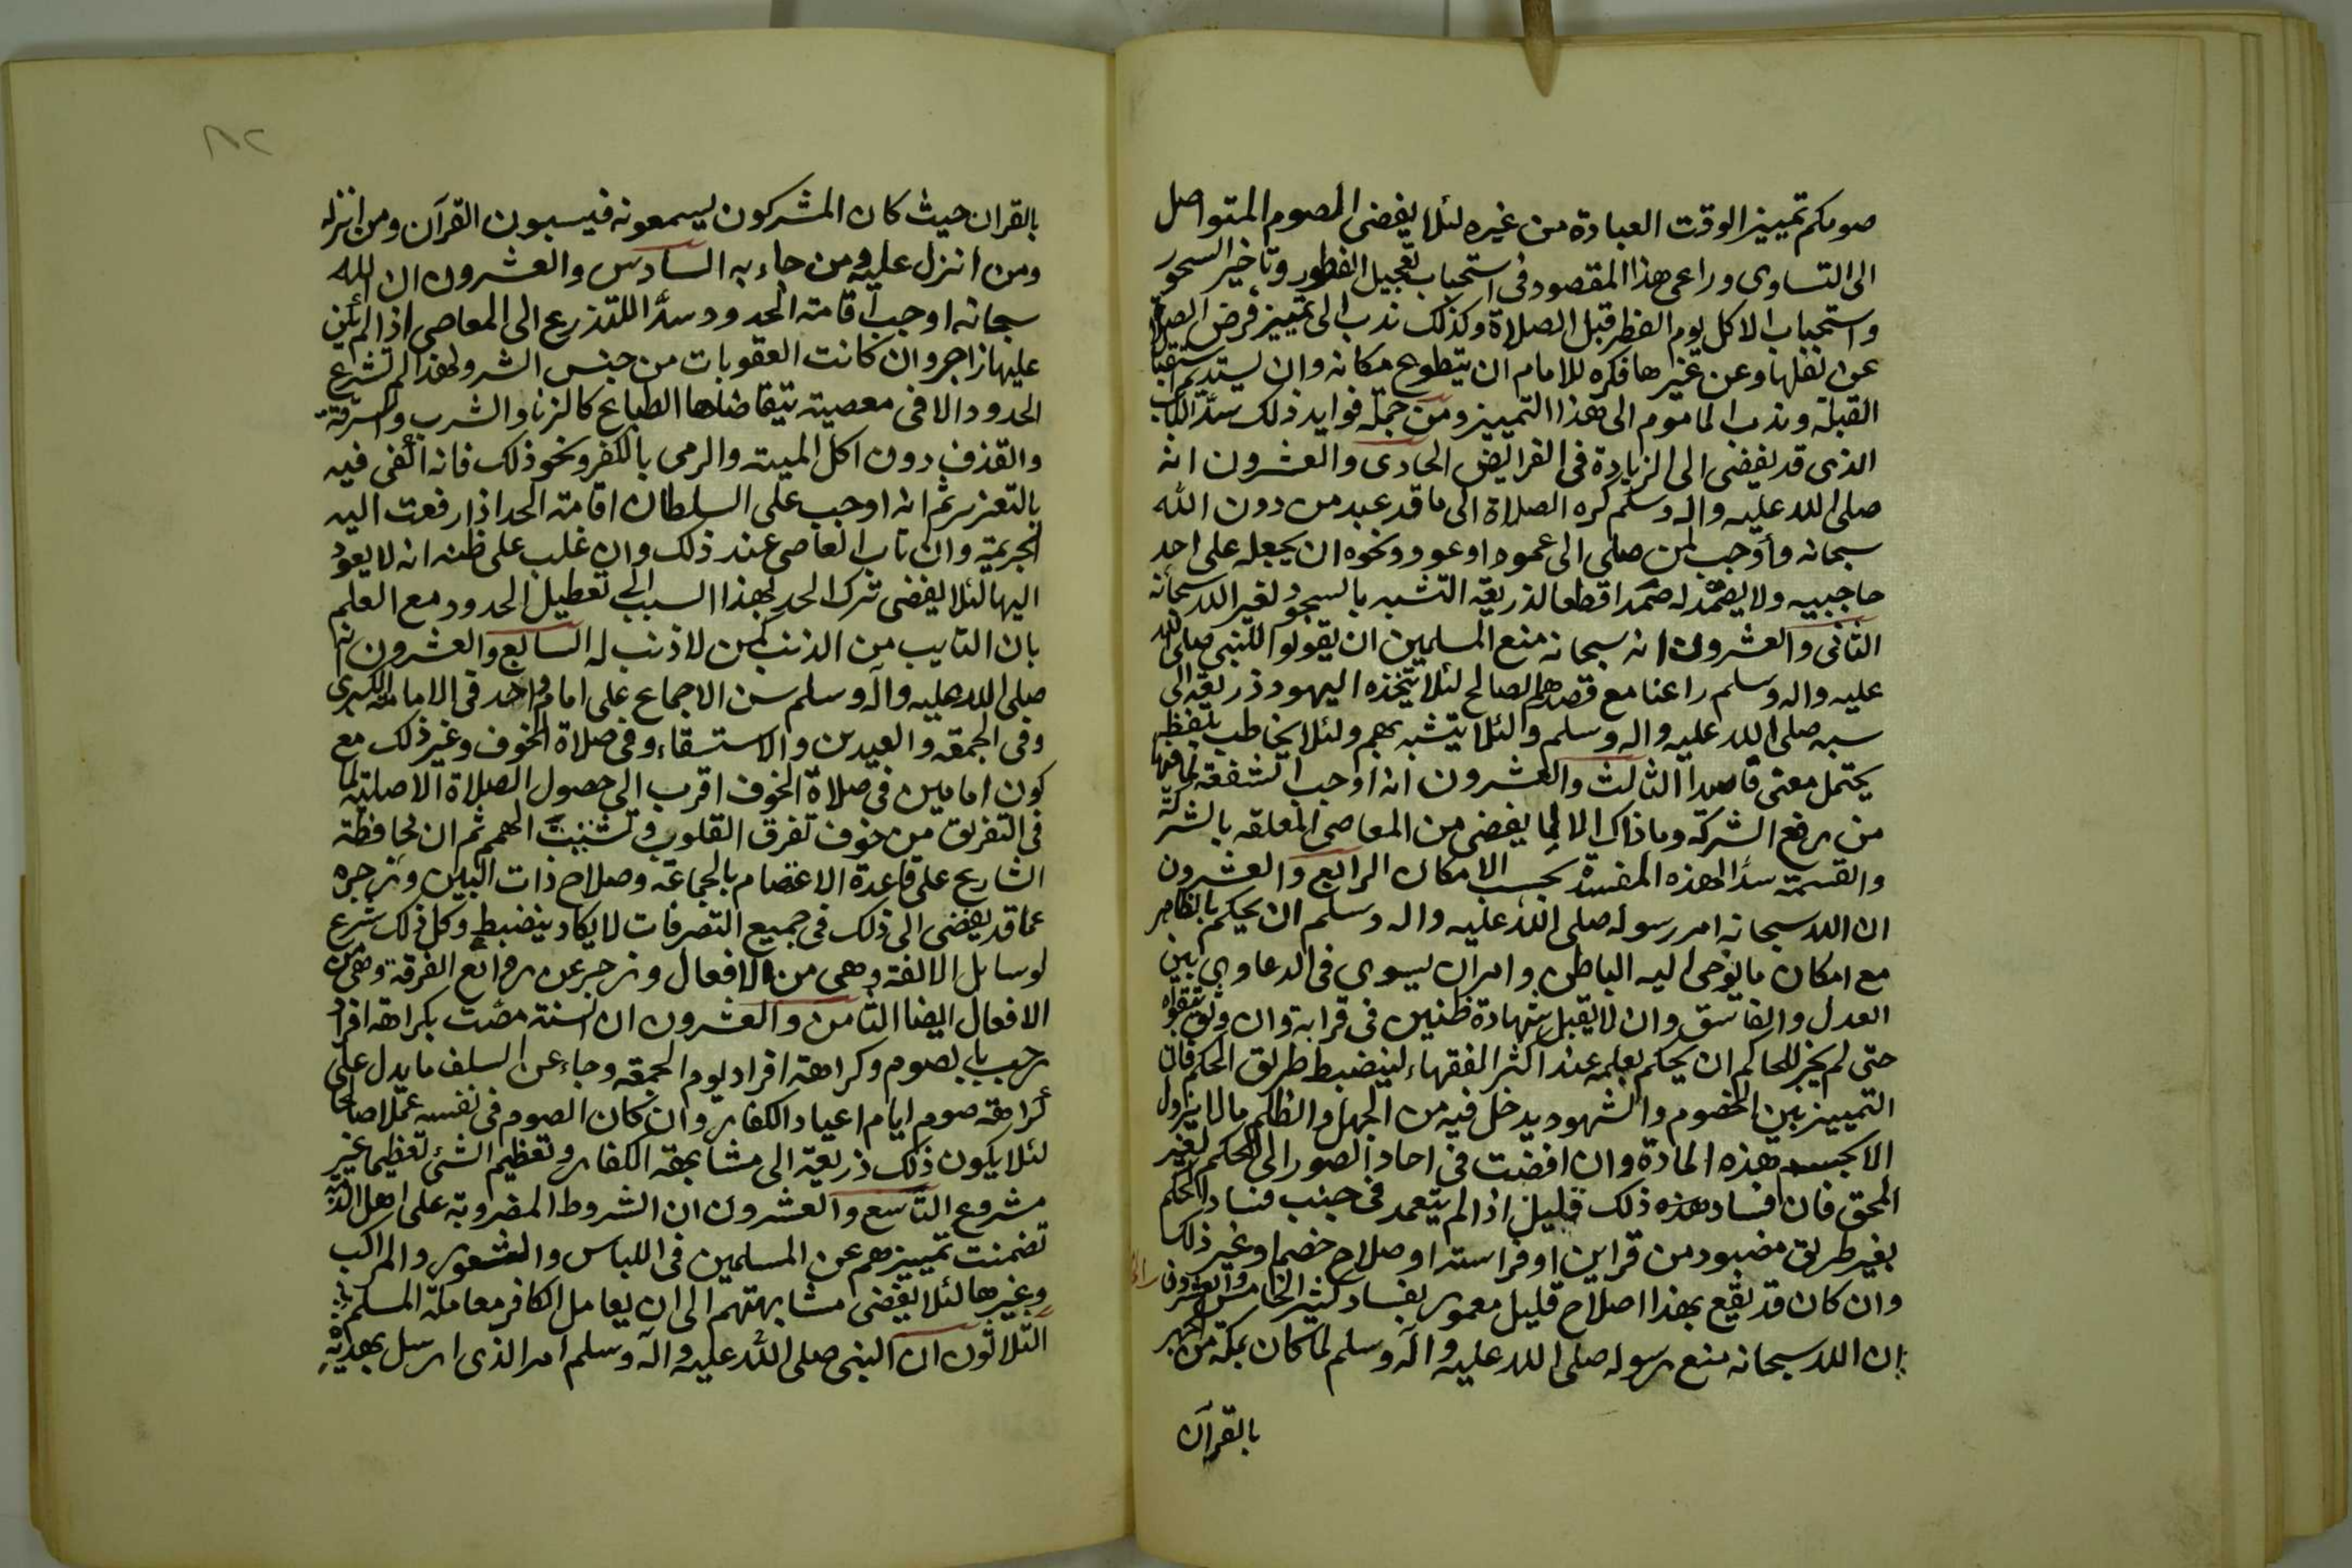 صومكم تمييز الوقت العبادة من غيره لئلا يفضى الصوم المتواصل
الى التساوى وراعى هذا المقصود فى استحباب تعجيل الفطور وتاخير السحور
واستحباب الاكل يوم الفطر قبل الصلاة وكذلك ندب الى تمييز فرض الصلاة
عن نفلها وعن غيرها فكره للامام ان يتطوع مكانه وان يستديم استقبال
القبلة وندب الماموم الى هذا التمييز ومن جملة فوايد ذلك سدّ الباب
الذى قد يفضى الى الزيادة فى الفرايض الحادى والعشرون انه
صلى الله عليه واله وسلم كره الصلاة الى ما قد عبد من دون الله
سبحانه وأوجب لمن صلى الى عمود او عود ونحوه ان يجعله على احد
حاجبيه ولا يصمد له صمدا قطعا لذريعة التشبه بالسجود لغير الله سبحانه
الثانى والعشرون انه سبحانه منع المسلمين ان يقولوا للنبى صلى الله
عليه واله وسلم راعنا مع قصدهم الصالح لئلا يتخذه اليهود ذريعة الى
سبه صلى الله عليه واله وسلم ولئلا يتشبه بهم ولئلا يخاطب بلفظ
يحتمل معنى فاسدا الثالث والعشرون انه اوجب الشفعة لما فيها
من رفع الشركة وما ذاك الا لما يفضى من المعاصى المعلقه بالشركة
والقسمة سدًا لهذه المفسدة بحسب الامكان الرابع والعشرون
ان الله سبحانه امر رسوله صلى الله عليه واله وسلم ان يحكم بالظاهر
مع امكان ما يوحى اليه الباطن وامران يسوى فى الدعاوى بين
العدل والفاسق وان لا يقبل شهادة ظنين فى قرابة وان وثق بتقواه
حتى لم يجز للحاكم ان يحكم بعلمه عند اكثر الفقهاء لينضبط طريق الحكم فان
التمييز بين الخصوم والشهود يدخل فيه من الجهل والظلم ما لا يزول
الا بحسم هذه المادة وان افضت فى احاد الصور الى الحكم لغير
المحق فان افساد هذه ذلك قليل اذا لم يتعمد فى جنب فساد الحكم
بغير طريق مضبود من قراين او فراسته او صلاح خصم او غير ذلك
وان كان قد يقع بهذا اصلاح قليل معمور بفساد كثير الخامس والعشرون
ان الله سبحانه منع رسوله صلى الله عليه وآله وسلم لما كان بمكة من الجهر
بالقرآن
٨٢
بالقران حيث كان المشركون يسمعونه فيسبون القرآن ومن انزله
ومن انزل عليه ومن جاء به السادس والعشرون ان الله
سبحانه اوجب اقامة الحدود سدًّا للتذرع الى المعاصى اذا لم يكن
عليها زاجر وان كانت العقوبات من جنس الشر ولهذا لم تشرع
الحدود الا فى معصية تتقاضاها الطباع كالزنا والشرب والسرقة
والقذف دون اكل الميته والرمى بالكفر ونحو ذلك فانه اكفى فيه
بالتعزير ثم انه اوجب على السلطان اقامة الحد اذا رفعت اليه
الجريمة وان تاب العاصى عند ذلك وان غلب على ظنه انه لا يعود
اليها لئلا يفضى ترك الحد لهذا السبب الى تعطيل الحدود مع العلم
بان التايب من الذنب كمن لا ذنب له السابع والعشرون انه
صلى الله عليه وآله وسلم سن الاجماع على امام واحد فى الامامة الكبرى
وفى الجمعة والعيدين والاستسقاء وفى صلاة الخوف وغير ذلك مع
كون امامين فى صلاة الخوف اقرب الى حصول الصلاة الاصلية لما
فى التفريق من خوف تفرق القلوب وتشتيت الهمم ثم ان محافظة
الشارع على قاعدة الاعتصام بالجماعة وصلاح ذات البين وزجره
عما قد يفضى الى ذلك فى جميع التصرفات لا يكاد ينضبط وكل ذلك شرع
لوسايل الالفة وهى من الافعال وزجر عن ذرائع الفرقة وهى من
الافعال ايضا الثامن والعشرون ان السنة مضت بكراهة افراد
رجب بالصوم وكراهة افراد يوم الجمعه وجاء عن السلف ما يدل على
كراهة صوم ايام اعياد الكفار وان كان الصوم فى نفسه عملا صالحا
لئلا يكون ذلك ذريعة الى مشابهة الكفار وتعظيم الشئ تعظيما غير
مشروع التاسع والعشرون ان الشروط المضروبة على اهل الذمة
تضمنت تمييزهم عن المسلمين فى اللباس والشعور والمراكب
وغيرها لئلا يفضى مشابهتهم الى ان يعامل الكافر معاملة المسلم
الثلاثون ان النبى صلى الله عليه وآله وسلم امر الذى ارسل بهديه